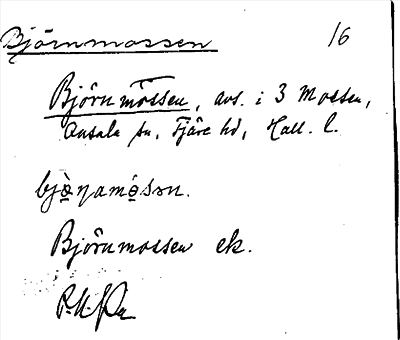 Björnmossen 16
Björnmossen, avs. i 3 Mossen,
Onsala sn, Fjäre hd, Hall. l.
bjò̤ɳamò̤sən.
Björnmossen ek.